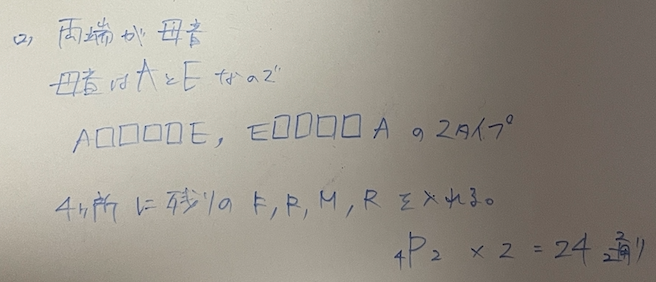 (2) 両端が母音
母音はAとEなので
A□□□□E, E□□□□Aの2タイプ
4ヶ所に残りのF, R, M, Rを入れる。
₄P₂ × 2 = 24 通り